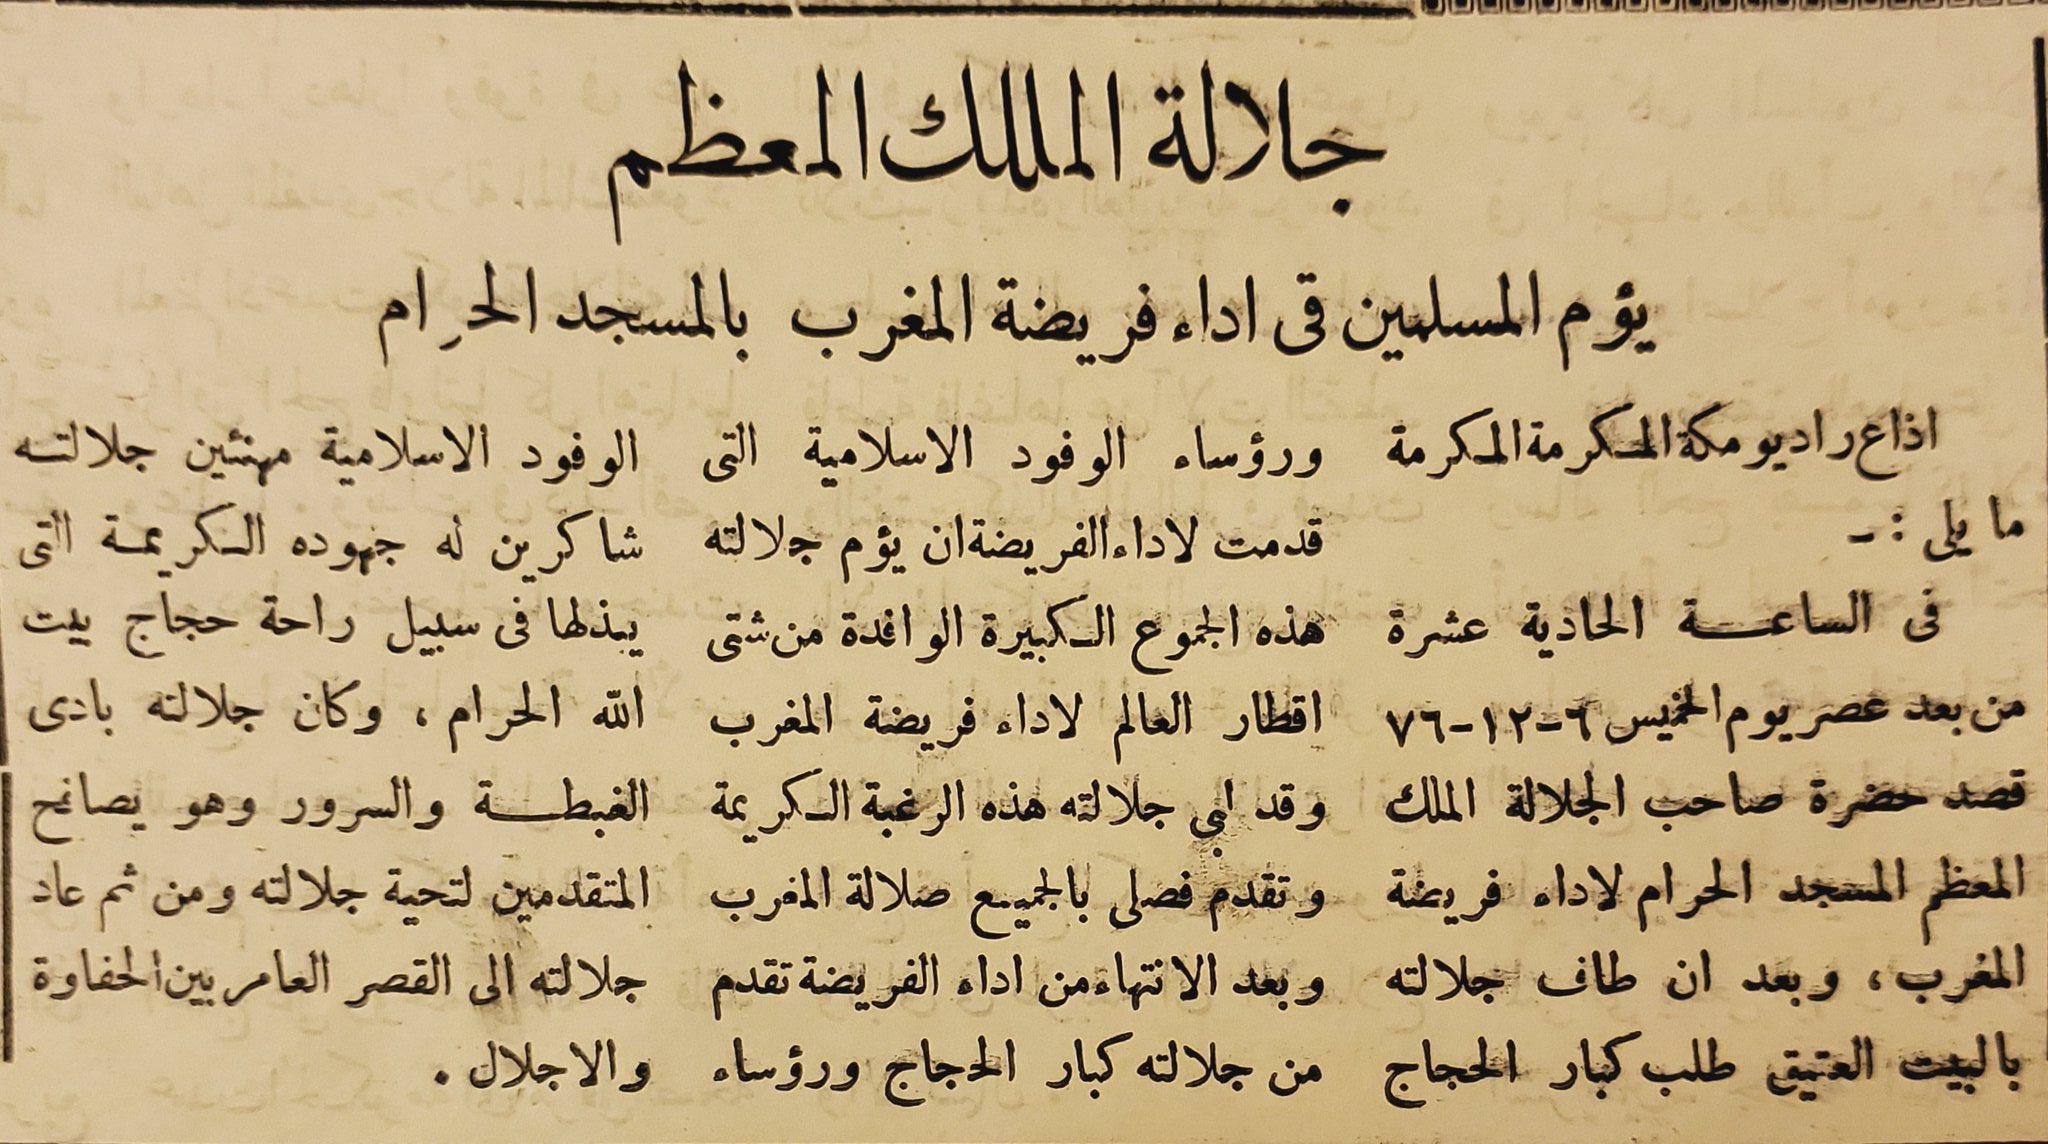 جلالة الملك المعظم
يؤم المسلمين فى اداء فريضة المغرب بالمسجد الحرام
اذاع راديو مكة المكرمة المكرمة
ما يلى : -
فى الساعة الحادية عشرة
من بعد عصر يوم الخميس ٦-١٢-٧٦
قصد حضرة صاحب الجلالة الملك
المعظم المسجد الحرام لاداء فريضة
المغرب ، وبعد ان طاف جلالته
بالبيت العتيق طلب كبار الحجاج
ورؤساء الوفود الاسلامية التى
قدمت لاداء الفريضة ان يؤم جلالته
هذه الجموع الكبيرة الوافدة من شتى
اقطار العالم لاداء فريضة المغرب
وقد لبى جلالته هذه الرغبة الكريمة
وتقدم فصلى بالجميع صلالة المغرب
وبعد الانتهاء من اداء الفريضة تقدم
من جلالته كبار الحجاج ورؤساء
الوفود الاسلامية مهنئين جلالته
شاكرين له جهوده الكريمة التى
يبذلها فى سبيل راحة حجاج بيت
الله الحرام ، وكان جلالته بادى
الغبطة والسرور وهو يصافح
المتقدمين لتحية جلالته ومن ثم عاد
جلالته الى القصر العامر بين الحفاوة
والاجلال .